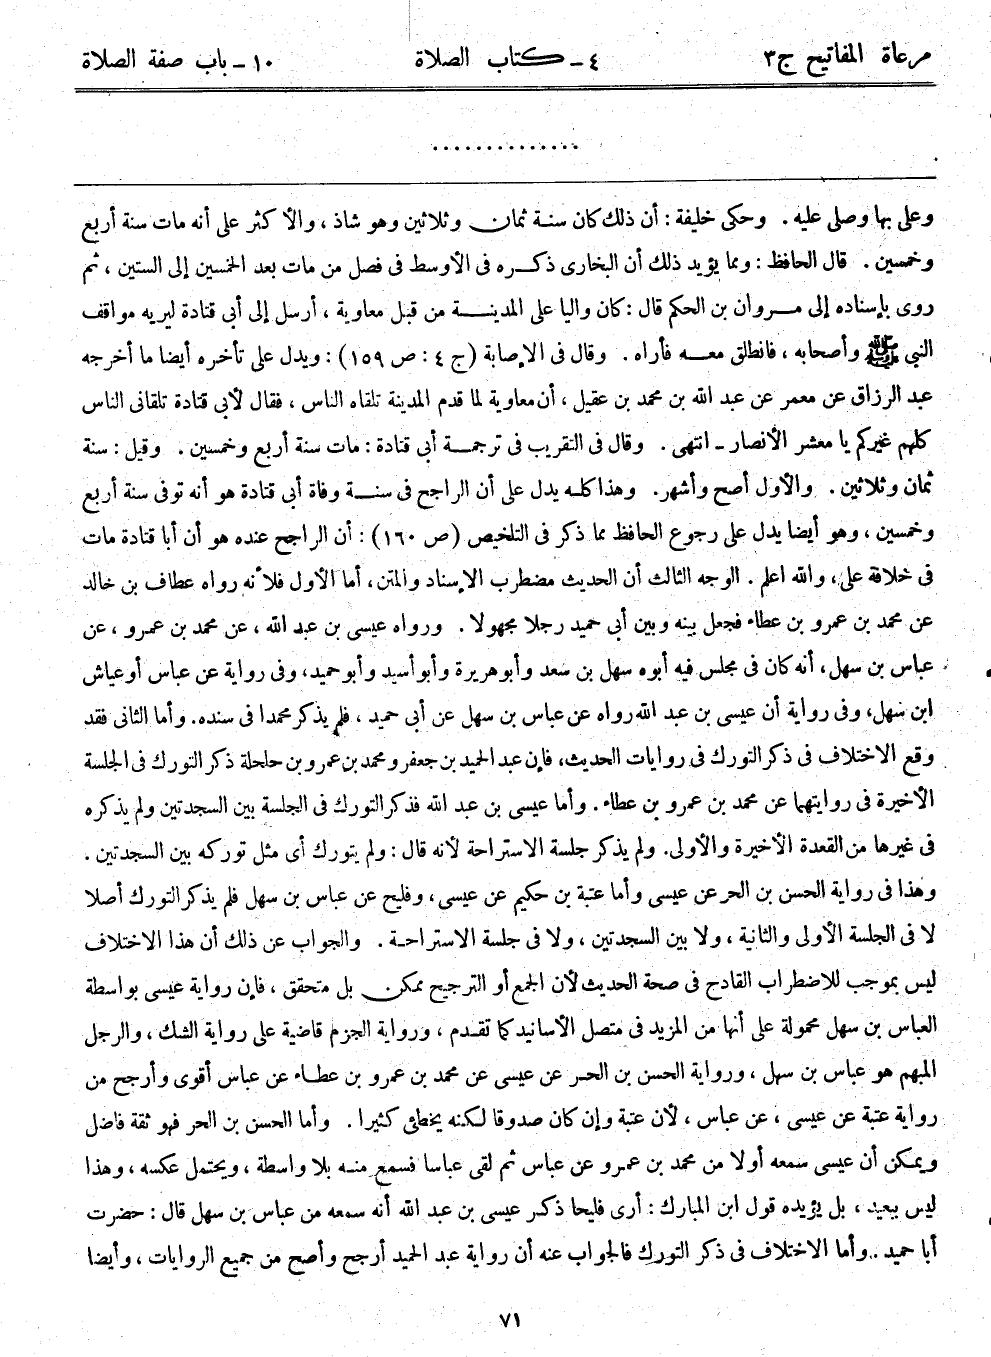 مرعاة المفاتيح ج٣ ٤ ــ كتاب الصلاة ١٠ ــ باب صفة الصلاة
.............
وعلى بها وصلى عليه . وحكى خليفة : أن ذلك كان سنة ثمان وثلاثين وهو شاذ ، والأكثر على أنه مات سنة أربع
وخمسين . قال الحافظ : ومما يؤيد ذلك أن البخارى ذكره فى الأوسط فى فصل من مات بعد الخمسين إلى الستين ، ثم
روى بإسناده إلى مروان بن الحكم قال : كان واليا على المدينة من قبل معاوية ، أرسل إلى أبى قتادة ليريه مواقف
النبى ﷺ وأصحابه ، فانطلق معه فأراه . وقال فى الإصابة (ج ٤ : ص ١٥٩) : ويدل على تأخره أيضا ما أخرجه
عبد الرزاق عن معمر عن عبد الله بن محمد بن عقيل ، أن معاوية لما قدم المدينة تلقاه الناس ، فقال لأبى قتادة تلقانى الناس
كلهم غيركم يا معشر الأنصار ــ انتهى . وقال فى التقريب فى ترجمة أبى قتادة : مات سنة أربع وخمسين . وقيل : سنة
ثمان وثلاثين . والأول أصح وأشهر. وهذا كله يدل على أن الراجح فى سنة وفاة أبى قتادة هو أنه توفى سنة أربع
وخمسين ، وهو أيضا يدل على رجوع الحافظ مما ذكر فى التلخيص (ص ١٦٠) : أن الراجح عنده هو أن أبا قتادة مات
فى خلافة على، والله اعلم . الوجه الثالث أن الحديث مضطرب الإسناد والمتن، أما الأول فلأنه رواه عطاف بن خالد
عن محمد بن عمرو بن عطاء فجعل بينه وبين أبى حميد رجلا مجهولا . ورواه عيسى بن عبد الله ، عن محمد بن عمرو ، عن
عباس بن سهل، أنه كان فى مجلس فيه أبوه سهل بن سعد وأبوهريرة وأبوأسيد وأبوحميد، وفى رواية عن عباس أوعياش
ابن سهل، وفى رواية أن عيسى بن عبد الله رواه عن عباس بن سهل عن أبى حميد ، فلم يذكر محمدا فى سنده. وأما الثانى فقد
وقع الاختلاف فى ذكر التورك فى روايات الحديث، فإن عبد الحميد بن جعفر ومحمد بن عمرو بن حلحلة ذكر التورك فى الجلسة
الأخيرة فى روايتهما عن محمد بن عمرو بن عطاء . وأما عيسى بن عبد الله فذكر التورك فى الجلسة بين السجدتين ولم يذكره
فى غيرها من القعدة الأخيرة والأولى. ولم يذكر جلسة الاستراحة لأنه قال : ولم يتورك أى مثل توركه بين السجدتين .
وهذا فى رواية الحسن بن الحر عن عيسى وأما عتبة بن حكيم عن عيسى، وفليح عن عباس بن سهل فلم يذكر التورك أصلا
لا فى الجلسة الأولى والثانية ، ولا بين السجدتين ، ولا فى جلسة الاستراحة . والجواب عن ذلك أن هذا الاختلاف
ليس بموجب للاضطراب القادح فى صحة الحديث لأن الجمع أو الترجيح ممكن بل متحقق ، فإن رواية عيسى بواسطة
العباس بن سهل محمولة على أنها من المزيد فى متصل الأسانيد كما تقدم ، ورواية الجزم قاضية على رواية الشك ، والرجل
المبهم هو عباس بن سهل ، ورواية الحسن بن الحر عن عيسى عن محمد بن عمرو بن عطاء عن عباس أقوى وأرجح من
رواية عتبة عن عيسى ، عن عباس ، لأن عتبة وإن كان صدوقا لكنه يخطئى كثيرا . وأما الحسن بن الحر فهو ثقة فاضل
ويمكن أن عيسى سمعه أولا من محمد بن عمرو عن عباس ثم لقى عباسا فسمع منه بلا واسطة ، ويحتمل عكسه ، وهذا
ليس ببعيد ، بل يؤيده قول ابن المبارك : أرى فليحا ذكر عيسى بن عبد الله أنه سمعه من عباس بن سهل قال : حضرت
أبا حميد . وأما الاختلاف فى ذكر التورك فالجواب عنه أن رواية عبد الحميد أرجح وأصح من جميع الروايات ، وأيضا
٧١